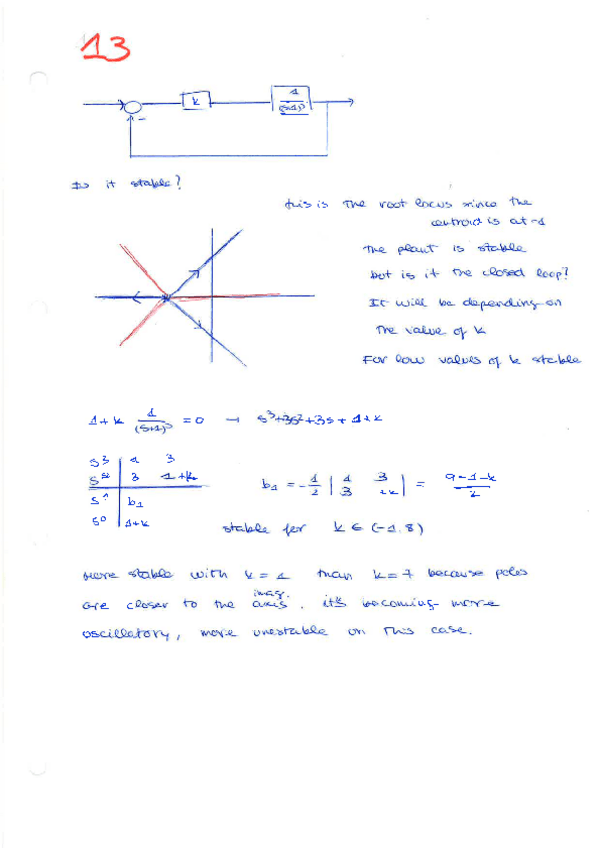 13
k
1
(s+1)³
-
Is it stable?
this is the root locus since the
centroid is at -1
The plant is stable
but is it the closed loop?
It will be depending on
the value of k
For low values of k stable
1+k 1/(s+1)³ = 0 → s³+3s²+3s+1+k
s³ | 1 3
s² | 3 1+k
s¹ | b₁
s⁰ | 1+k
b₁ = -1/2 | 1 3 3 1+k | = 9-1-k/2
stable for k ∈ (-1,8)
More stable with k=1 than k=7 because poles
are closer to the imag. axis. it's becoming more
oscillatory, more unestable on this case.